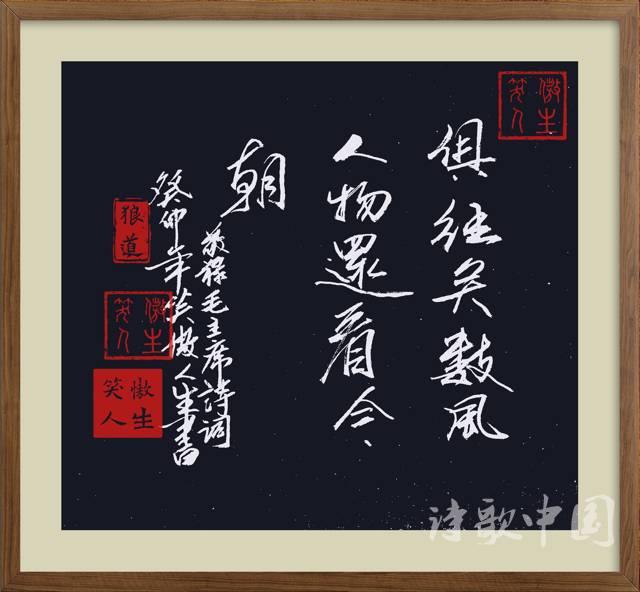 笑傲
人生
俱往矣數風
人物還看今
朝
敬錄毛主席詩詞
癸卯年笑傲人生書
狼道
笑傲
人生
笑傲
人生
诗歌中国